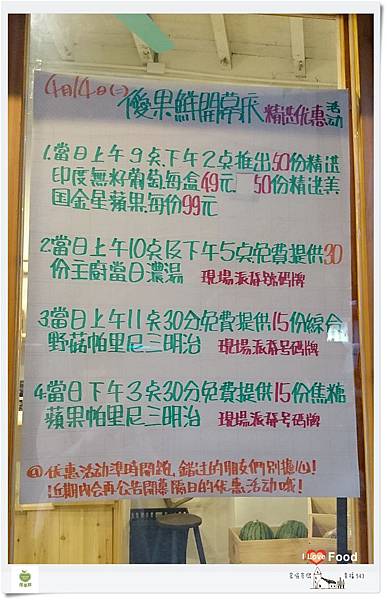 4月14日(二)
優果鮮開幕 精選优惠活动
1.當日上午9点、下午2点推出50份精選
印度無籽葡萄,每盒49元 50份精选美
国金星蘋果,每份99元
2.當日上午10点及下午5点免費提供30
份主廚當日濃湯 現場派發號码牌
3.當日上午11点30分免費提供15份綜合
野菇帕里尼三明治 現場派發号码牌
4.當日下午3点30分免費提供15份焦糖
蘋果帕里尼三明治 現場派發号码牌
@优惠活动準時開鑼,錯过的朋友們別擔心!
近期內会再公告開幕隔日的优惠活动哦!
I Love Food
幸福 543